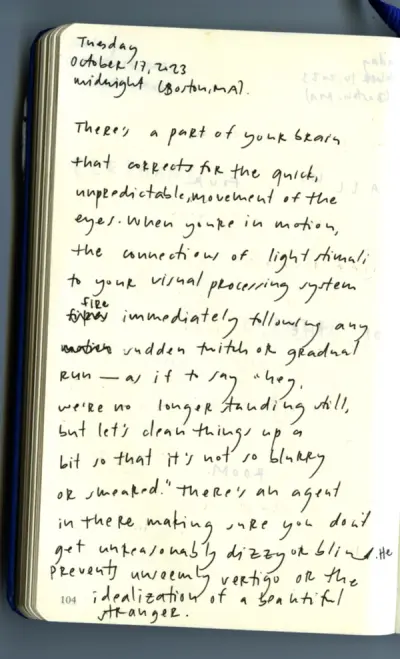 Tuesday
October 17, 2023
midnight (Boston, MA).
There's a part of your brain
that corrects for the quick,
unpredictable, movement of the
eyes. When you're in motion,
the connections of light stimuli
to your visual processing system
fire
fires immediately following any
motion sudden twitch or gradual
run — as if to say "hey,
we're no longer standing still,
but let's clean things up a
bit so that it's not so blurry
or smeared." There's an agent
in there making sure you don't
get unreasonably dizzy or blind. He
prevents unseemly vertigo or the
104 idealization of a beautiful
stranger.